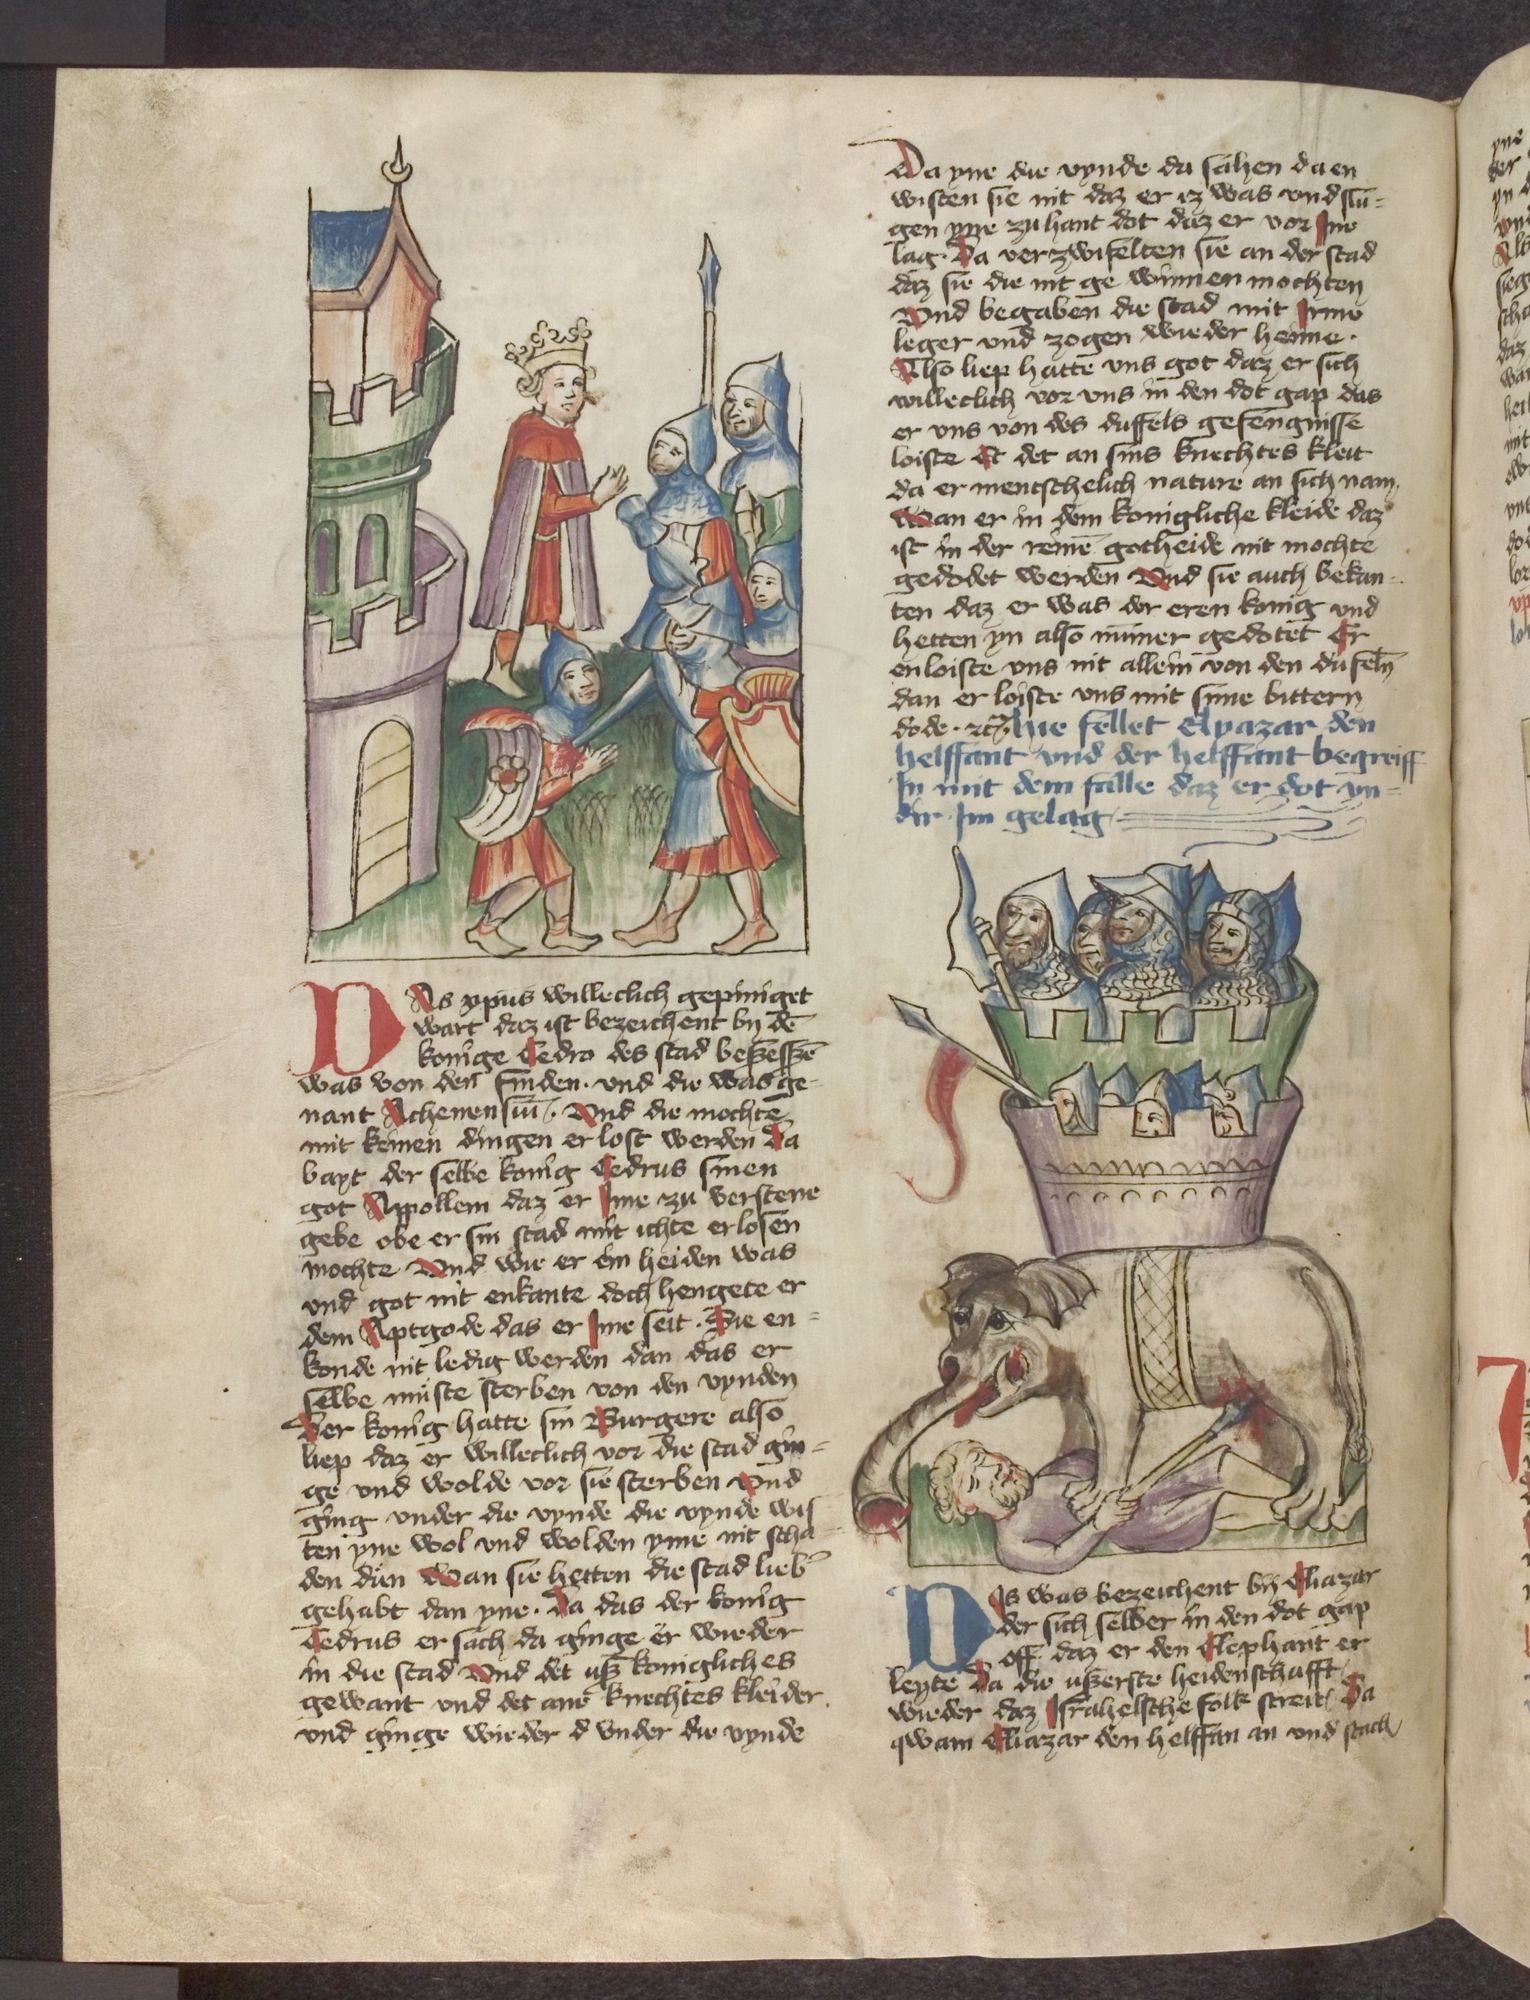 Das ypus willeclich gepiniget
wart daz ist bezeichent by dē
konige Cedro des stad beseszē
was von den finden. und die was ge-
nant Achenensiū. Und die mochte
mit keinen dingen erlost werden Da
bayt der selbe konig Cedrus sinen
got Appollem daz er Ime zu verstene
gebe obe er sin stad mit ichte erlosen
mochte Und wie er ein heiden was
und got nit enkante doch hengete er
dem Aptgode das er Ime seit. Sie en-
konde nit ledig werden dan das er
selbe müste sterben von den vynden
Der konig hatte sin Burgere also
liep daz er willeclich vor die stad gin-
ge und wolde vor sie sterben Und
ging under die vynde die vynde wis
ten yne wol und wolden yme nit scha-
den dün Wan sie hetten die stad lieb
gehabt dan yne. Da das der konig
Cedrus ersach da ginge er wieder
in die stad Und det usz konigliches
gewant und det ane knechtes kleider
und ginge wieder d under die vynde
Da yne die vynde da sahen da en
wisten sie nit daz er iz was und slu-
gen yme zu hant dot daz er vor Ime
lag. Da verzwifelten sie an der stad
daz sie die nit ge winnen mochten
Und begaben die stad mit Irme
leger und zogen wieder heime.
Also liep hatte uns got daz er sich
willeclich vor uns in den dot gap das
er uns von des duffels gefengnisse
loiste Et det an sins knechtes kleit
da er mentschelich nature an sich nam.
Wan er in dem konigliche kleide daz
ist in der reinē gotheide nit mochte
gedodet werden Und sie auch bekan-
ten daz er was der eren konig und
hetten yn also nümer gedotet Er
enloiste uns nit allein von den dufeln
dan er loiste uns mit sime bittern
dode. Hie fellet Elyazar den
helffant und der helffant begreiff
In mit dem falle daz er dot yn-
der Im gelag
Dis was bezeichent by Eliazar
der sich selber in den dot gap
off daz er den Elephant er
leyte Da die uszerste heidenschafft
wieder daz Israhelsche folk streit Da
qwam Eliazar den helffan an und stach